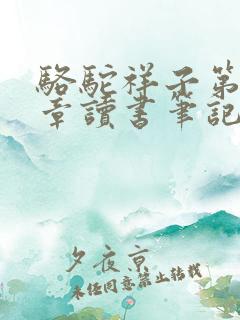 駱駝祥子第
章讀書筆記
夕夜京
未經同意禁止轉載